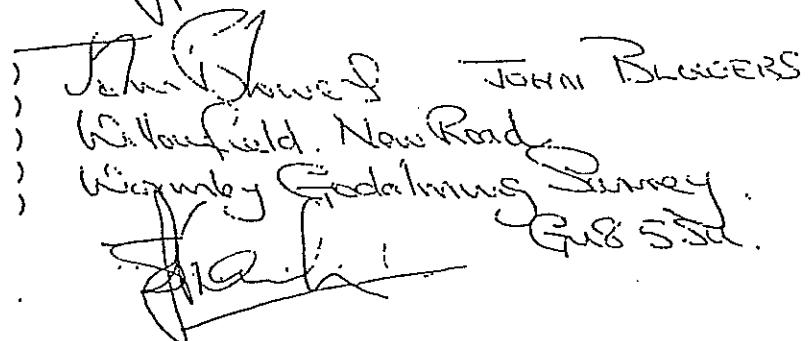 John Blowers JOHN BLOWERS
Willowfield. New Road
Wormley Godalming Surrey.
GU8 5SU.